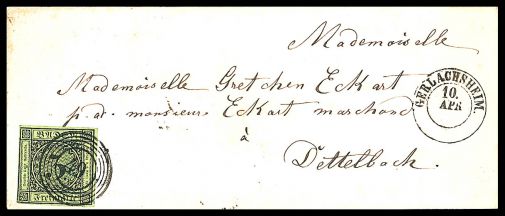 Mademoiselle
Mademoiselle Gretchen Eckart
p. ar. monsieur Eckart marchand
à
Dettelbach.
GERLACHSHEIM.
10.
APR
BADEN
Freimarke